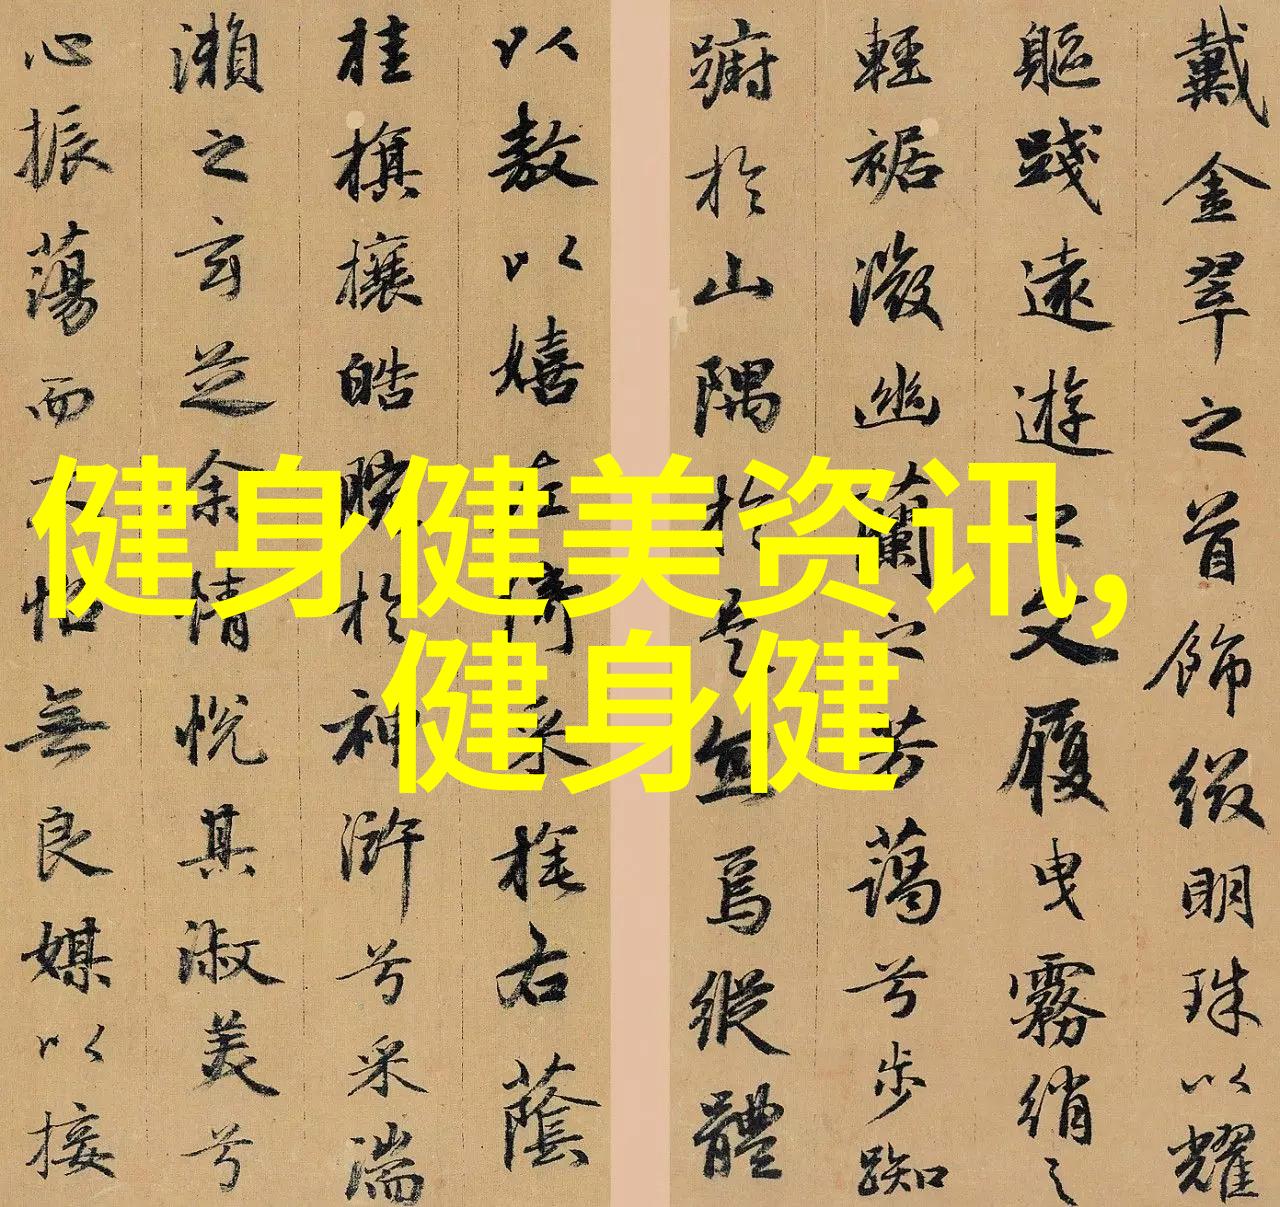 戴金翠之首飾綴明珠以耀
軀踐遠遊之文履曳霧綃之
輕裾微幽蘭之芳藹兮步踟
躕於山隅於是忽焉縱體
以敖以嬉左倚采旄右蔭
桂旗攘皓腕於神滸兮采湍
瀨之玄芝余情悅其淑美兮
心振蕩而不怡無良媒以接
健身健美资讯,
健身健